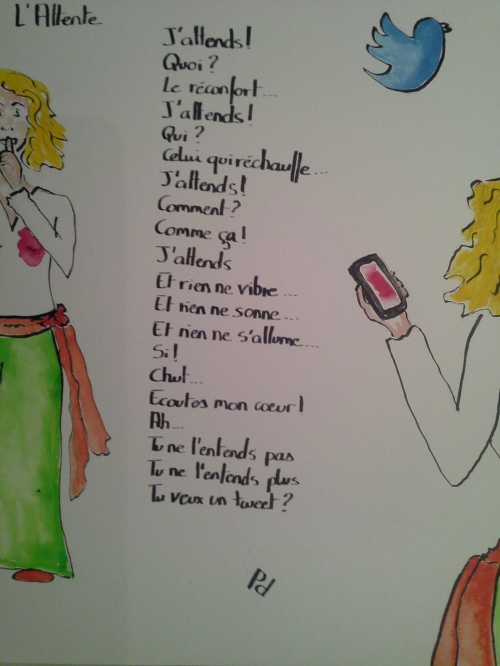 L'Attente
J'attends!
Quoi?
Le réconfort...
J'attends!
Qui?
Celui qui réchauffe...
J'attends!
Comment?
Comme ça!
J'attends
Et rien ne vibre...
Et rien ne sonne...
Et rien ne s'allume...
Si!
Chut...
Ecoutes mon coeur!
Ah...
Tu ne l'entends pas
Tu ne l'entends plus
Tu veux un tweet?
Pd